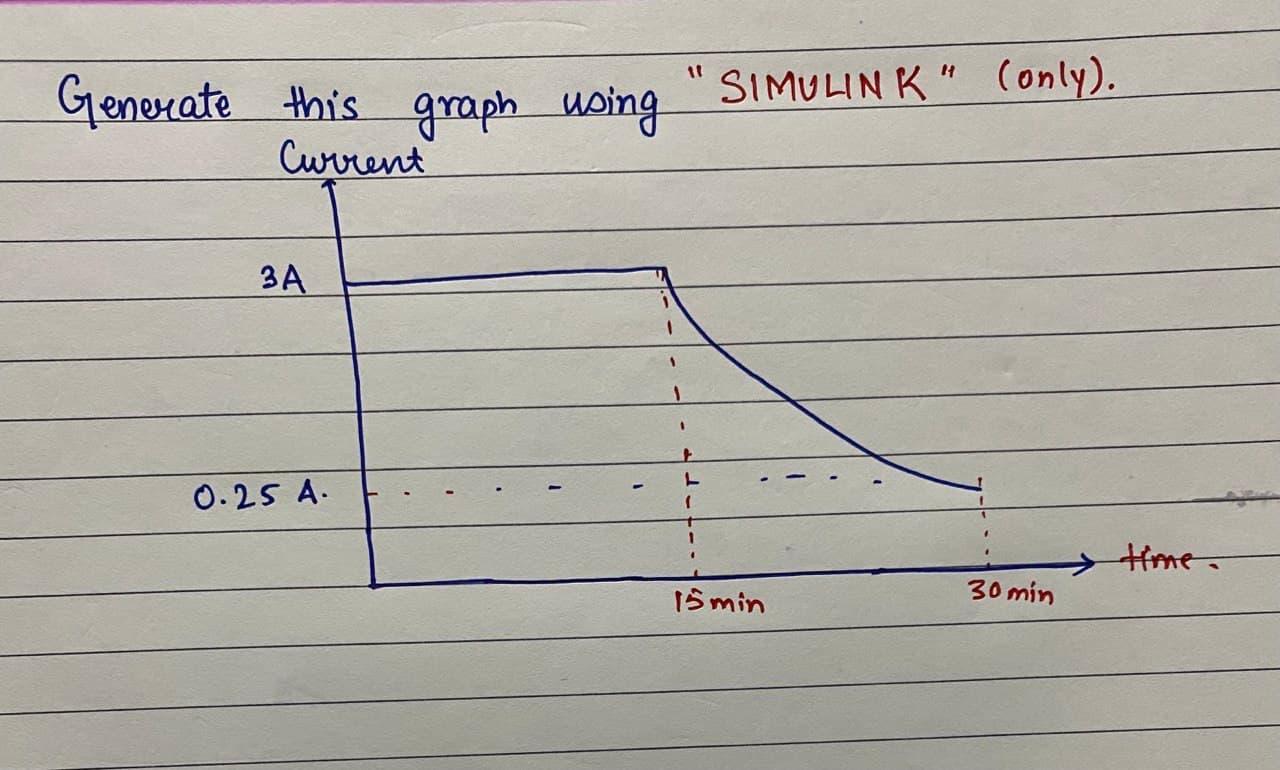 Generate this graph using "SIMULINK" (only).
Current
3A
0.25 A.
time.
15min
30min